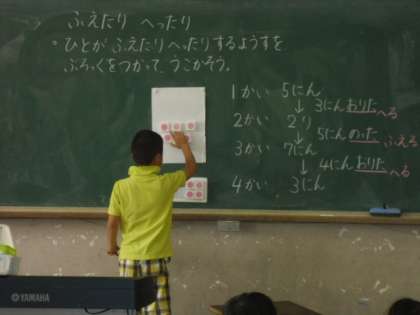 ふえたり へったり
・ひとが ふえたりへったりするようすを
ぶろっくをつかって、うごかそう。
1かい 5にん
↓ 3にんおりた へる
2かい 2り
↓ 5にんのった ふえる
3かい 7にん
↓ 4にんおりた へる
4かい 3にん
YAMAHA